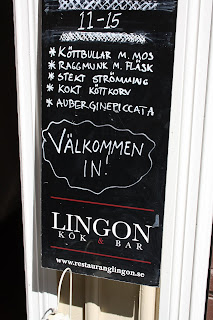 11-15
* KÖTTBULLAR M. MOS
* RAGGMUNK M. FLÄSK
* STEKT STRÖMMING
* KOKT KÖTTKORV
* AUBERGINEPICCATA
VÄLKOMMEN
IN!
LINGON
KÖK & BAR
www.restauranglingon.se